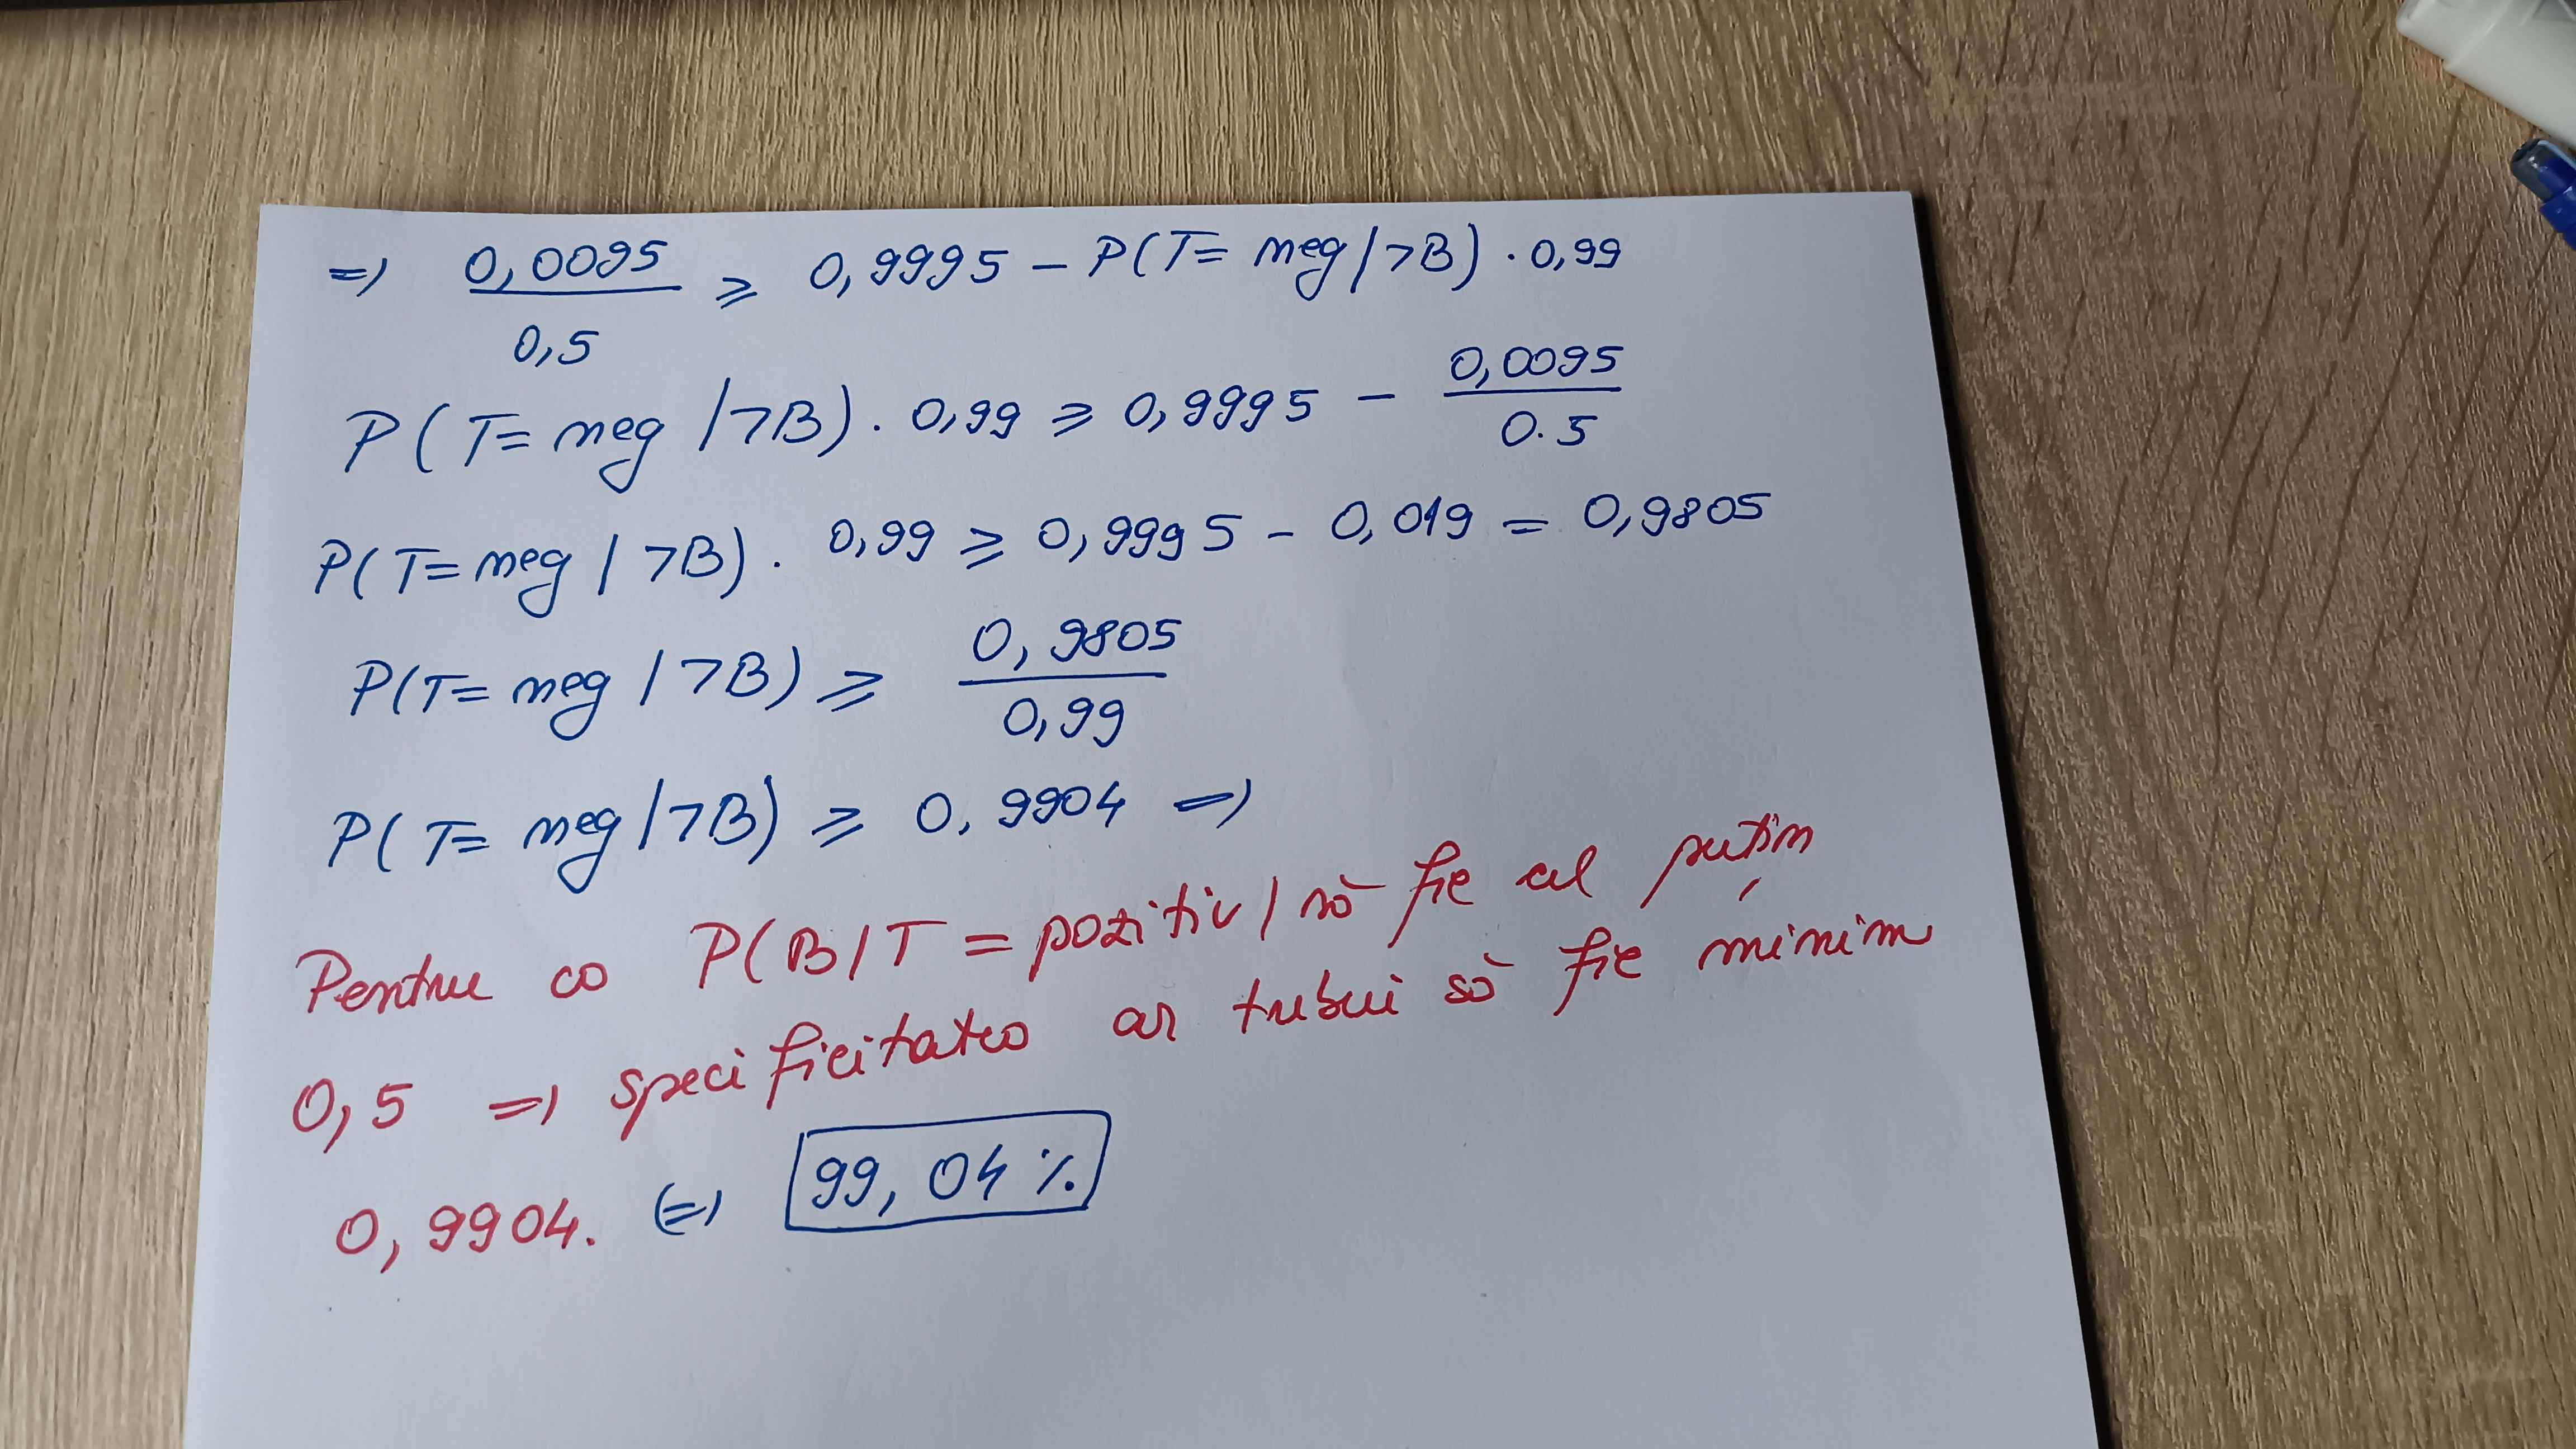 => 0,0095 / 0,5 ≥ 0,9995 - P(T= neg/¬B) · 0,99
P(T= neg /¬B) · 0,99 ≥ 0,9995 - 0,0095 / 0.5
P(T= neg / ¬B) · 0,99 ≥ 0,9995 - 0,019 = 0,9805
P(T= neg /¬B) ≥ 0,9805 / 0,99
P(T= neg/¬B) ≥ 0,9904 =>
Pentru ca P(B/T = pozitiv) să fie cel puțin
0,5 => specificitatea ar trebui să fie minim
0,9904. (=) 99,04 %.